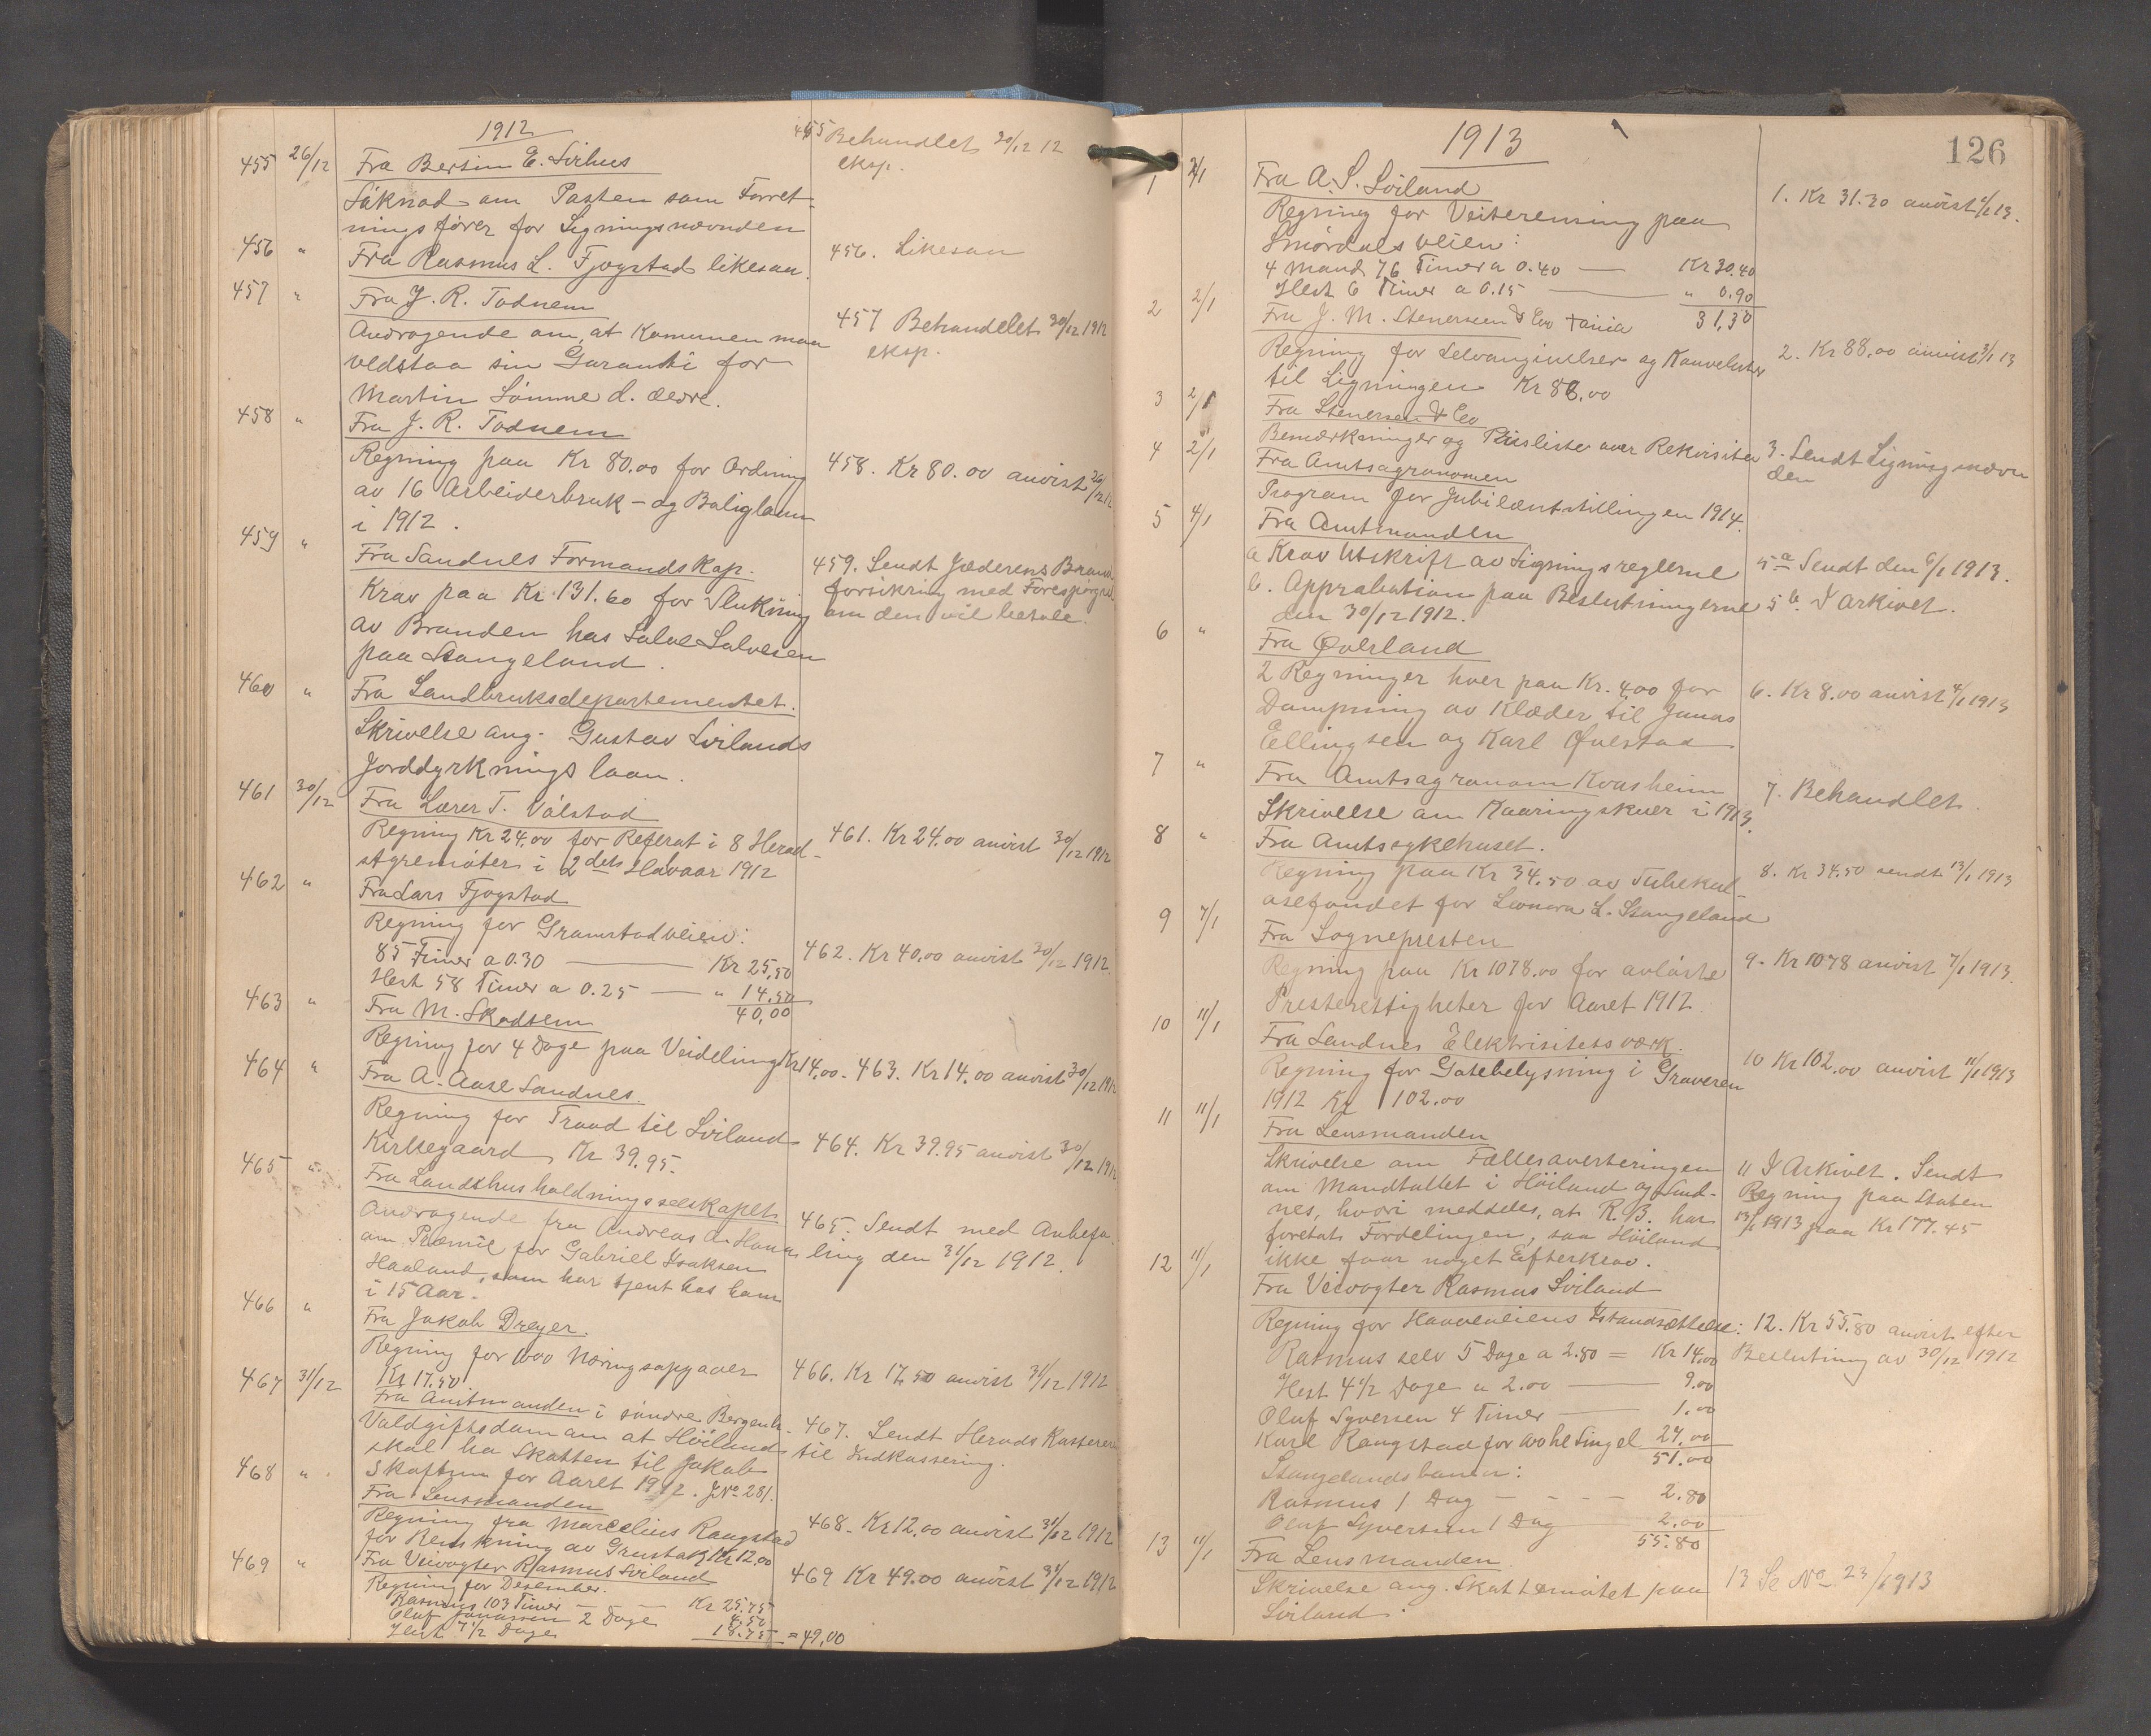 1912
455 26/12 Fra Bertin E. Svihus
Søknad om Posten som Forret-
ningsfører for Ligningsnævnden
455 Behandlet 30/12 12
eksp.
456 " Fra Rasmus L. Fjogstad likesaa.
456. Likesaa
457 " Fra J. R. Todnem
Andragende om, at Komunen maa
vedstaa sin Garanti for
Martin Sømme d. ældre.
457 Behandelet 30/12 1912
eksp.
458 " Fra J. R. Todnem
Regning paa Kr 80.00 for Ordning
av 16 Arbeiderbruk- og Boliglaan
i 1912.
458. Kr 80.00 anvist 26/12 12
459 " Fra Sandnes Formandskap.
Krav paa Kr 131.60 for Slukning
av Branden hos Salve Salvesen
paa Stangeland.
459. Sendt Jæderens Brand-
forsikring med Forespørgsel
om den vil betale.
460 " Fra Landbruksdepartementet.
Skrivelse ang. Gustav Svilands
Jorddyrkningslaan.
461 30/12 Fra Lærer T. Vølstad
Regning Kr 24.00 for Referat i 8 Herad-
styremøter i 2det Halvaar 1912
461. Kr 24.00 anvist 30/12 1912
462 " Fra Lars Fjogstad
Regning for Gramstadveien:
85 Timer a 0.30 — Kr 25,50
Hest 58 Timer a 0.25 — " 14.50
40,00
462. Kr 40,00 anvist 30/12 1912
463 " Fra M. Skadsem
Regning for 4 Dage paa Veideling Kr 14,00.
463. Kr 14.00 anvist 30/12 1912
464 " Fra A. Aase Sandnes.
Regning for Traad til Sviland
Kirkegaard Kr 39.95.
464. Kr 39.95 anvist 30/12 1912
465 " Fra Landhusholdningsselskapet
Andragende fra Andreas A. Hana
om Præmie for Gabriel Isaksen
Haaland, som har tjent hos ham
i 15 Aar.
465. Sendt med Anbefa-
ling den 31/12 1912.
466 " Fra Jakob Dreyer.
Regning for 1000 Næringsopgaver
Kr 17.50
466. Kr 17.50 anvist 31/12 1912
467 31/12 Fra Amtmanden i søndre Bergenh.
Voldgiftsdom om at Høiland
skal ha Skatten til Jakob
Skaftun for Aaret 1912. JNo 281.
467. Sendt Herads Kasserer
til Indkassering.
468 " Fra Lensmanden
Regning fra Marcelius Raugstad
for Renskning av Grustak Kr 12.00
468. Kr 12.00 anvist 31/12 1912
469 " Fra Veivogter Rasmus Sviland
Regning for Desember.
Rasmus 103 Timer — Kr 25.75
Oluf Jonassen 2 Dage 4.50
Hest 7 1/2 Dage 18.75 = 49,00
469 Kr 49.00 anvist 31/12 1912
1913
126
1 2/1 Fra A. S. Sviland
Regning for Veiterensning paa
Smørdalsveien:
4 Mand 76 Timer a 0.40 — Kr 30.40
Hest 6 Timer a 0.15 — " 0.90
31,30
1. Kr 31.30 anvist 2/1 13.
2 2/1 Fra J. M. Stenersen & Co
Regning for Selvangivelser og Konvolutter
til Ligningen Kr 88.00
2. Kr 88,00 anvist 3/1 13
3 2/1 Fra Stenersen & Co
Bemærkninger og Prisliste over Rekvisita
3. Sendt Ligningsnævn
den
4 2/1 Fra Amtsagronomen
Program for Jubilæutstillingen 1914.
5 4/1 Fra Amtmanden
a Krav Utskrift av Ligningsreglerne
b. Approbation paa Beslutningerne
den 30/12 1912.
5 a Sendt den 6/1 1913.
5 b. I Arkivet.
6 " Fra Øverland
2 Regninger hver paa Kr. 4,00 for
Dampning av Klæder til Jonas
Ellingsen og Karl Øvestad
6. Kr 8.00 anvist 4/1 1913
7 " Fra Amtsagronom Kvasheim
Skrivelse om Kaaringskuer i 1913.
7. Behandlet.
8 " Fra Amtssykehuset.
Regning paa Kr 34.50 av Tuberkul-
osefondet for Leonora L. Stangeland
8. Kr 34.50 sendt 13/1 1913
9 7/1 Fra Sognepresten
Regning paa Kr 1078.00 for avløste
Presterettigheter for Aaret 1912.
9. Kr 1078 anvist 7/1 1913.
10 11/1 Fra Sandnes Elektrisitetsværk.
Regning for Gatebelysning i Graveren
1912 Kr 102.00
10 Kr 102.00 anvist 11/1 1913
11 11/1 Fra Lensmanden
Skrivelse om Fællesaverteringen
om Mandtallet i Høiland og Sand-
nes, hvori meddeles, at R. B. har
foretat Fordelingen, saa Høiland
ikke faar noget Efterkrav.
11 I Arkivet. Sendt
Regning paa Staten
13/1 1913 paa Kr 177.45
12 11/1 Fra Veivogter Rasmus Sviland
Regning for Hoveveiens Istandsættelse:
Rasmus selv 5 Dage a 2.80 = Kr 14,00
Hest 4 1/2 Dage a 2.00 — 9.00
Oluf Syversen 4 Timer — 1.00
Karl Raugstad for Singel 27.00
51.00
Stangelandsbanen:
Rasmus 1 Dag — 2.80
Oluf Syversen 1 Dag 2.00
55.80
12. Kr 55.80 anvist efter
Beslutning av 30/12 1912
13 11/1 Fra Lensmanden.
Skrivelse ang. Skattemøtet paa
Sviland.
13 Se No 23/1913